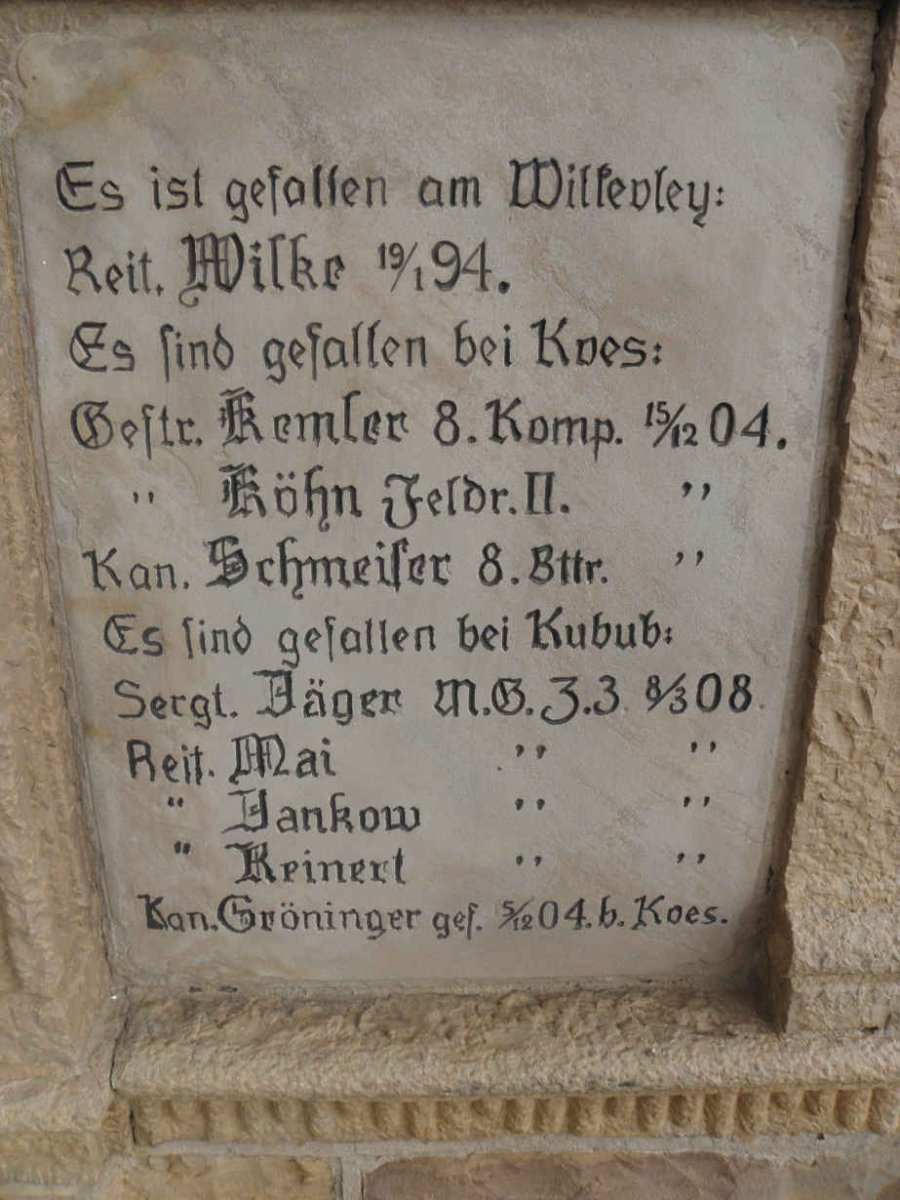 Es ist gefallen am Wilkevley:
Reit. Wilke 19/1 94.
Es sind gefallen bei Koes:
Gefr. Kemler 8. Komp. 15/12 04.
" Köhn Feldr. II. "
Kan. Schmeiser 8. Bttr. "
Es sind gefallen bei Kubub:
Sergt. Jäger M.G.Z.3 8/3 08.
Reit. Mai " "
" Jankow " "
" Reinert " "
Kan. Gröninger gef. 5/12 04. b. Koes.